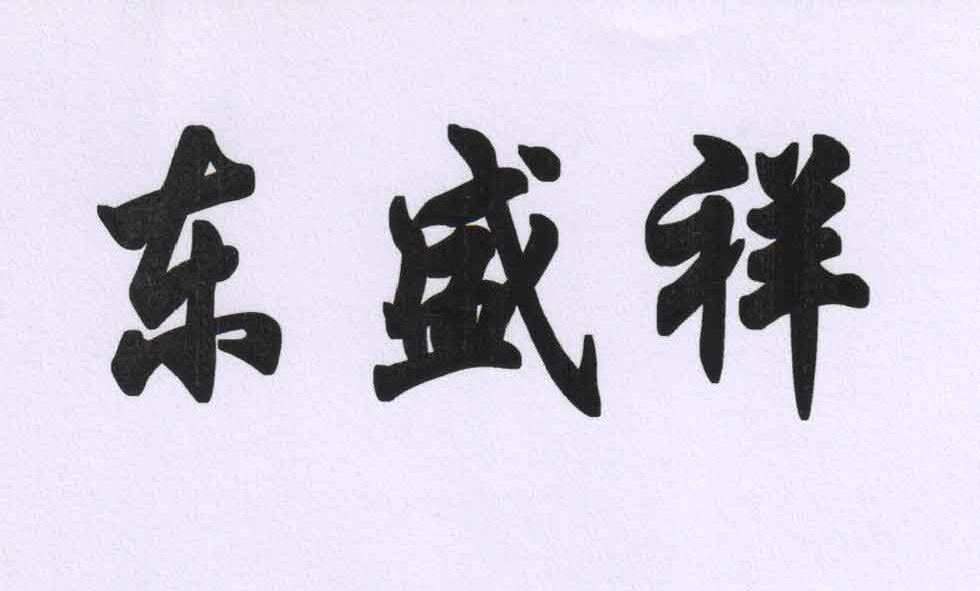 东盛祥